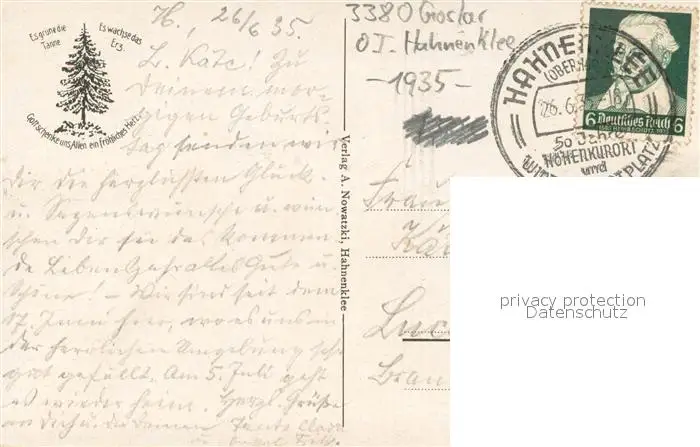 Es grüne die Tanne
Es wachse das Erz
Gott schenke uns Allen ein fröhliches Herz
H., 26/6 35.
L. Käte! Zu
Deinem mor-
gigen Geburts-
tag senden wir
Dir die herzlichsten Glück-
u. Segenswünsche u. wün-
schen Dir für das kommen-
de Lebensjahr alles Gute u.
Schöne! – Wir sind seit dem
17. Juni hier, wo es uns in
der herrlichen Umgebung sehr
gut gefällt. Am 5. Juli geht
es wieder heim. Herzl. Grüße
an Dich u. die Deinen Tante
u. Onkel
Verlag A. Nowatzki, Hahnenklee
3380 Goslar
OT. Hahnenklee
-1935-
HAHNENKLEE
(OBERHARZ)
26.6.
50 Jahre
HÖHENKURORT
und
WINTERSPORTPLATZ
6 Deutsches Reich 6
Frau
Luc
Bran
privacy protection
Datenschutz